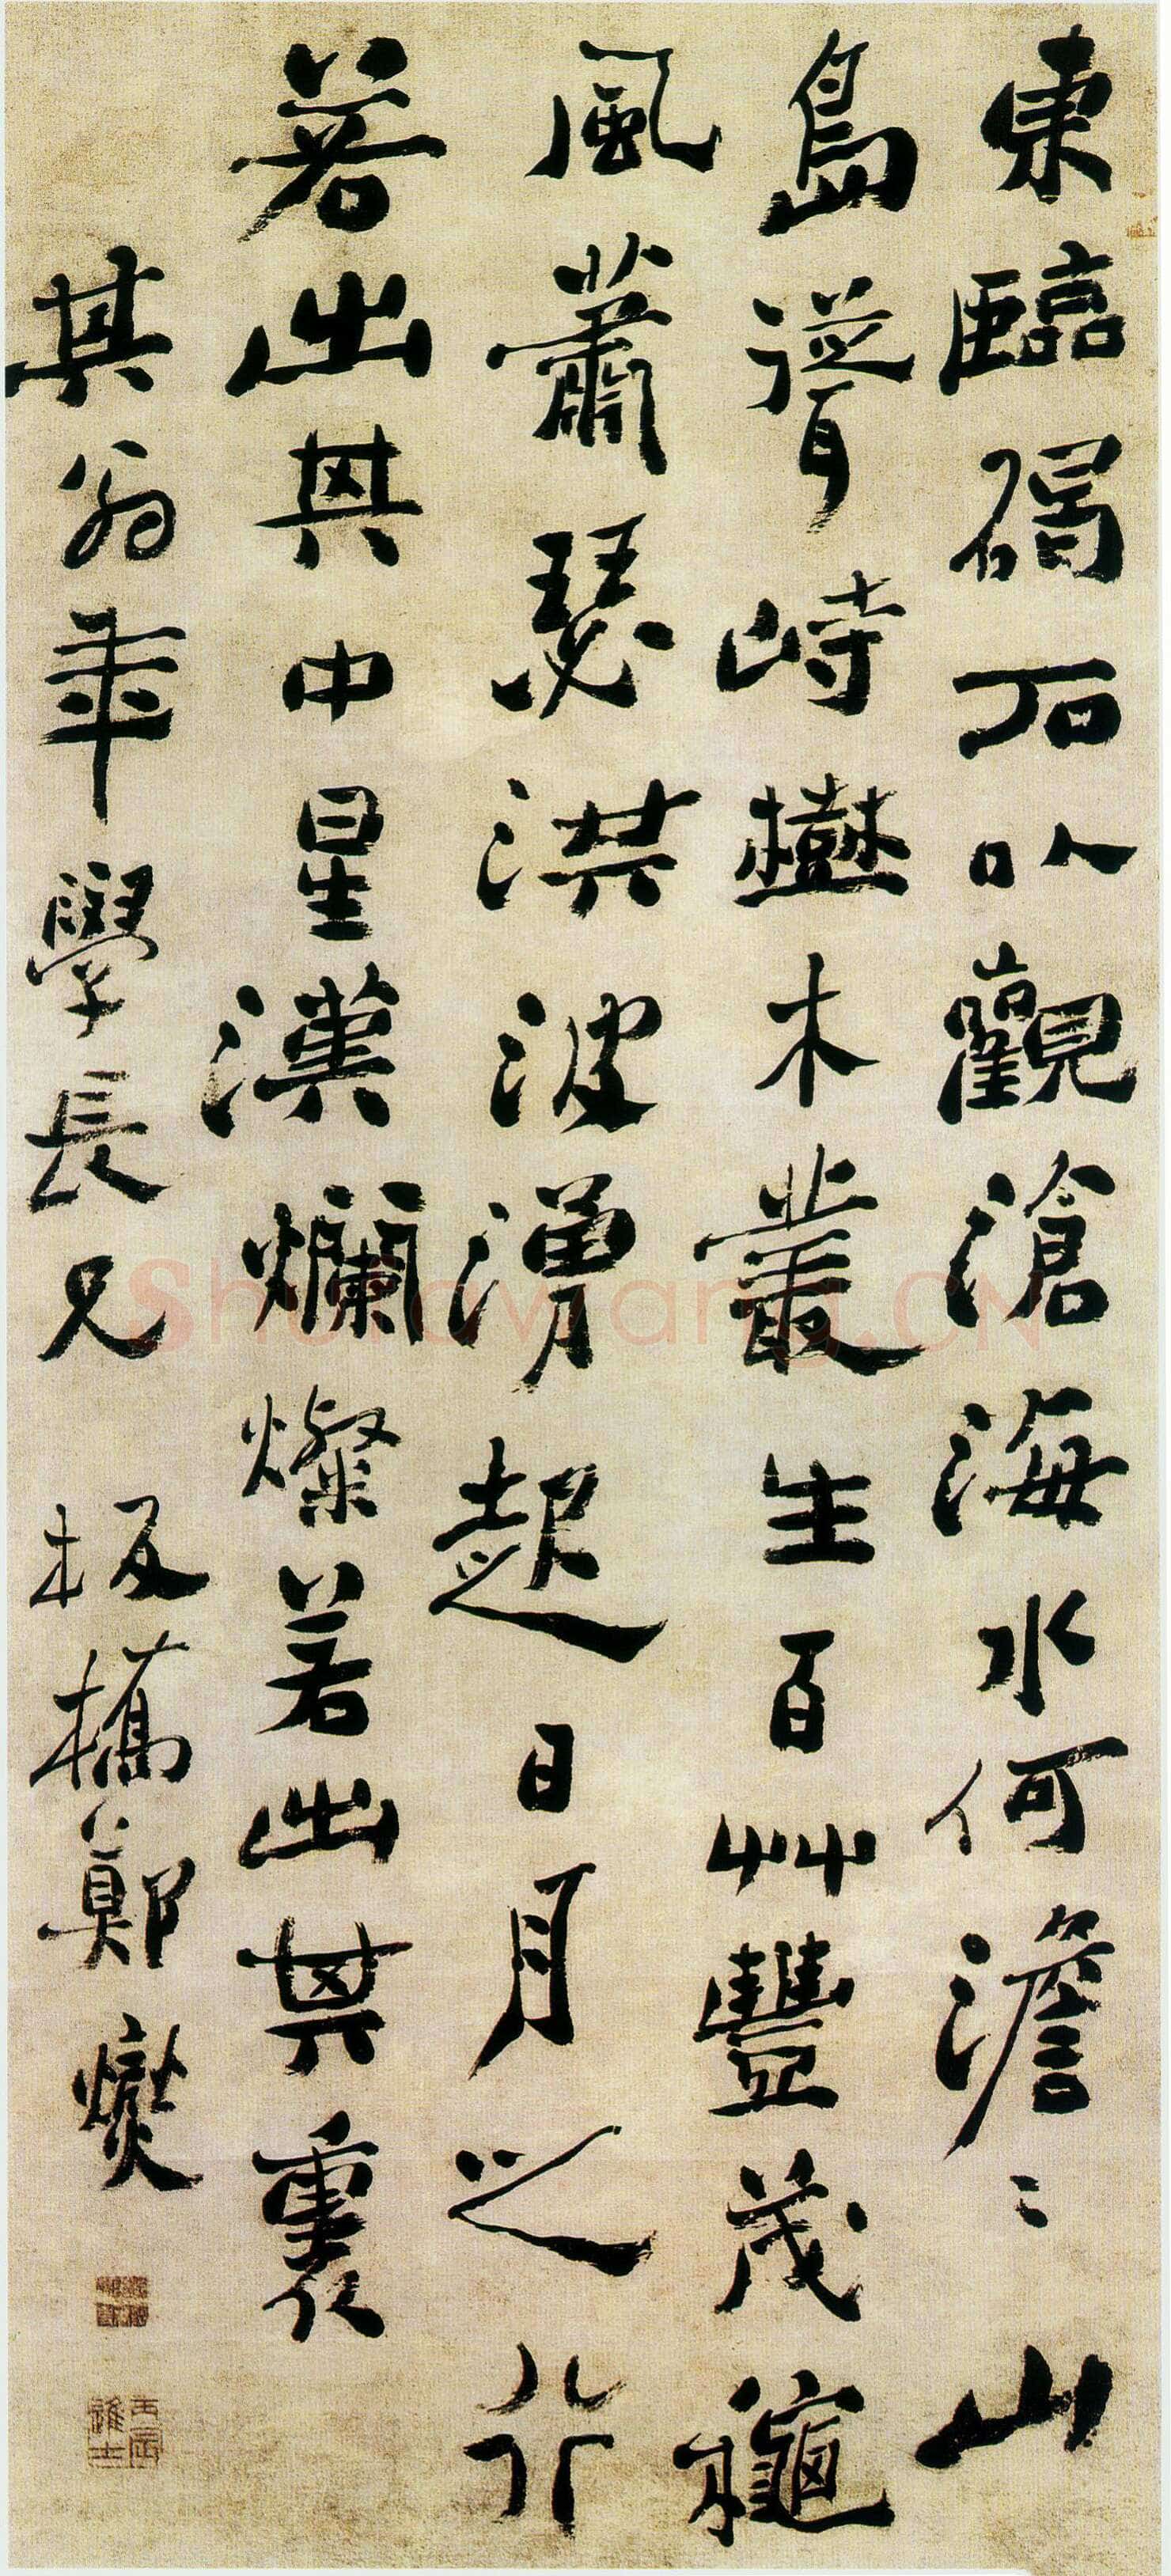 東臨碣石以觀滄海水何澹〻山
島聳峙樹木叢生百艸豐茂龝
風蕭瑟洪波湧起日月之行
若出其中星漢爛燦若出其裏
其翁年學長兄 板橋鄭燮
丙辰進士
ShufaWang.CN